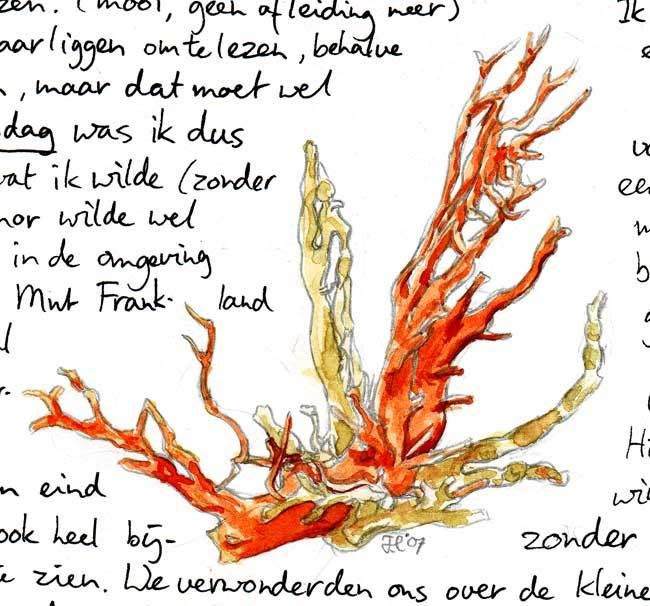 zen. (mooi, geen afleiding meer) Ik
aarliggen om te lezen, behalve
n, maar dat moet wel
dag was ik dus
wat ik wilde (zonder
wilde wel
in de omgeving
Mnt Frank- land
l
r.
Hi
n eind
wi
ook heel bij-
zonder
te zien. We verwonderden ons over de kleine
JH'07